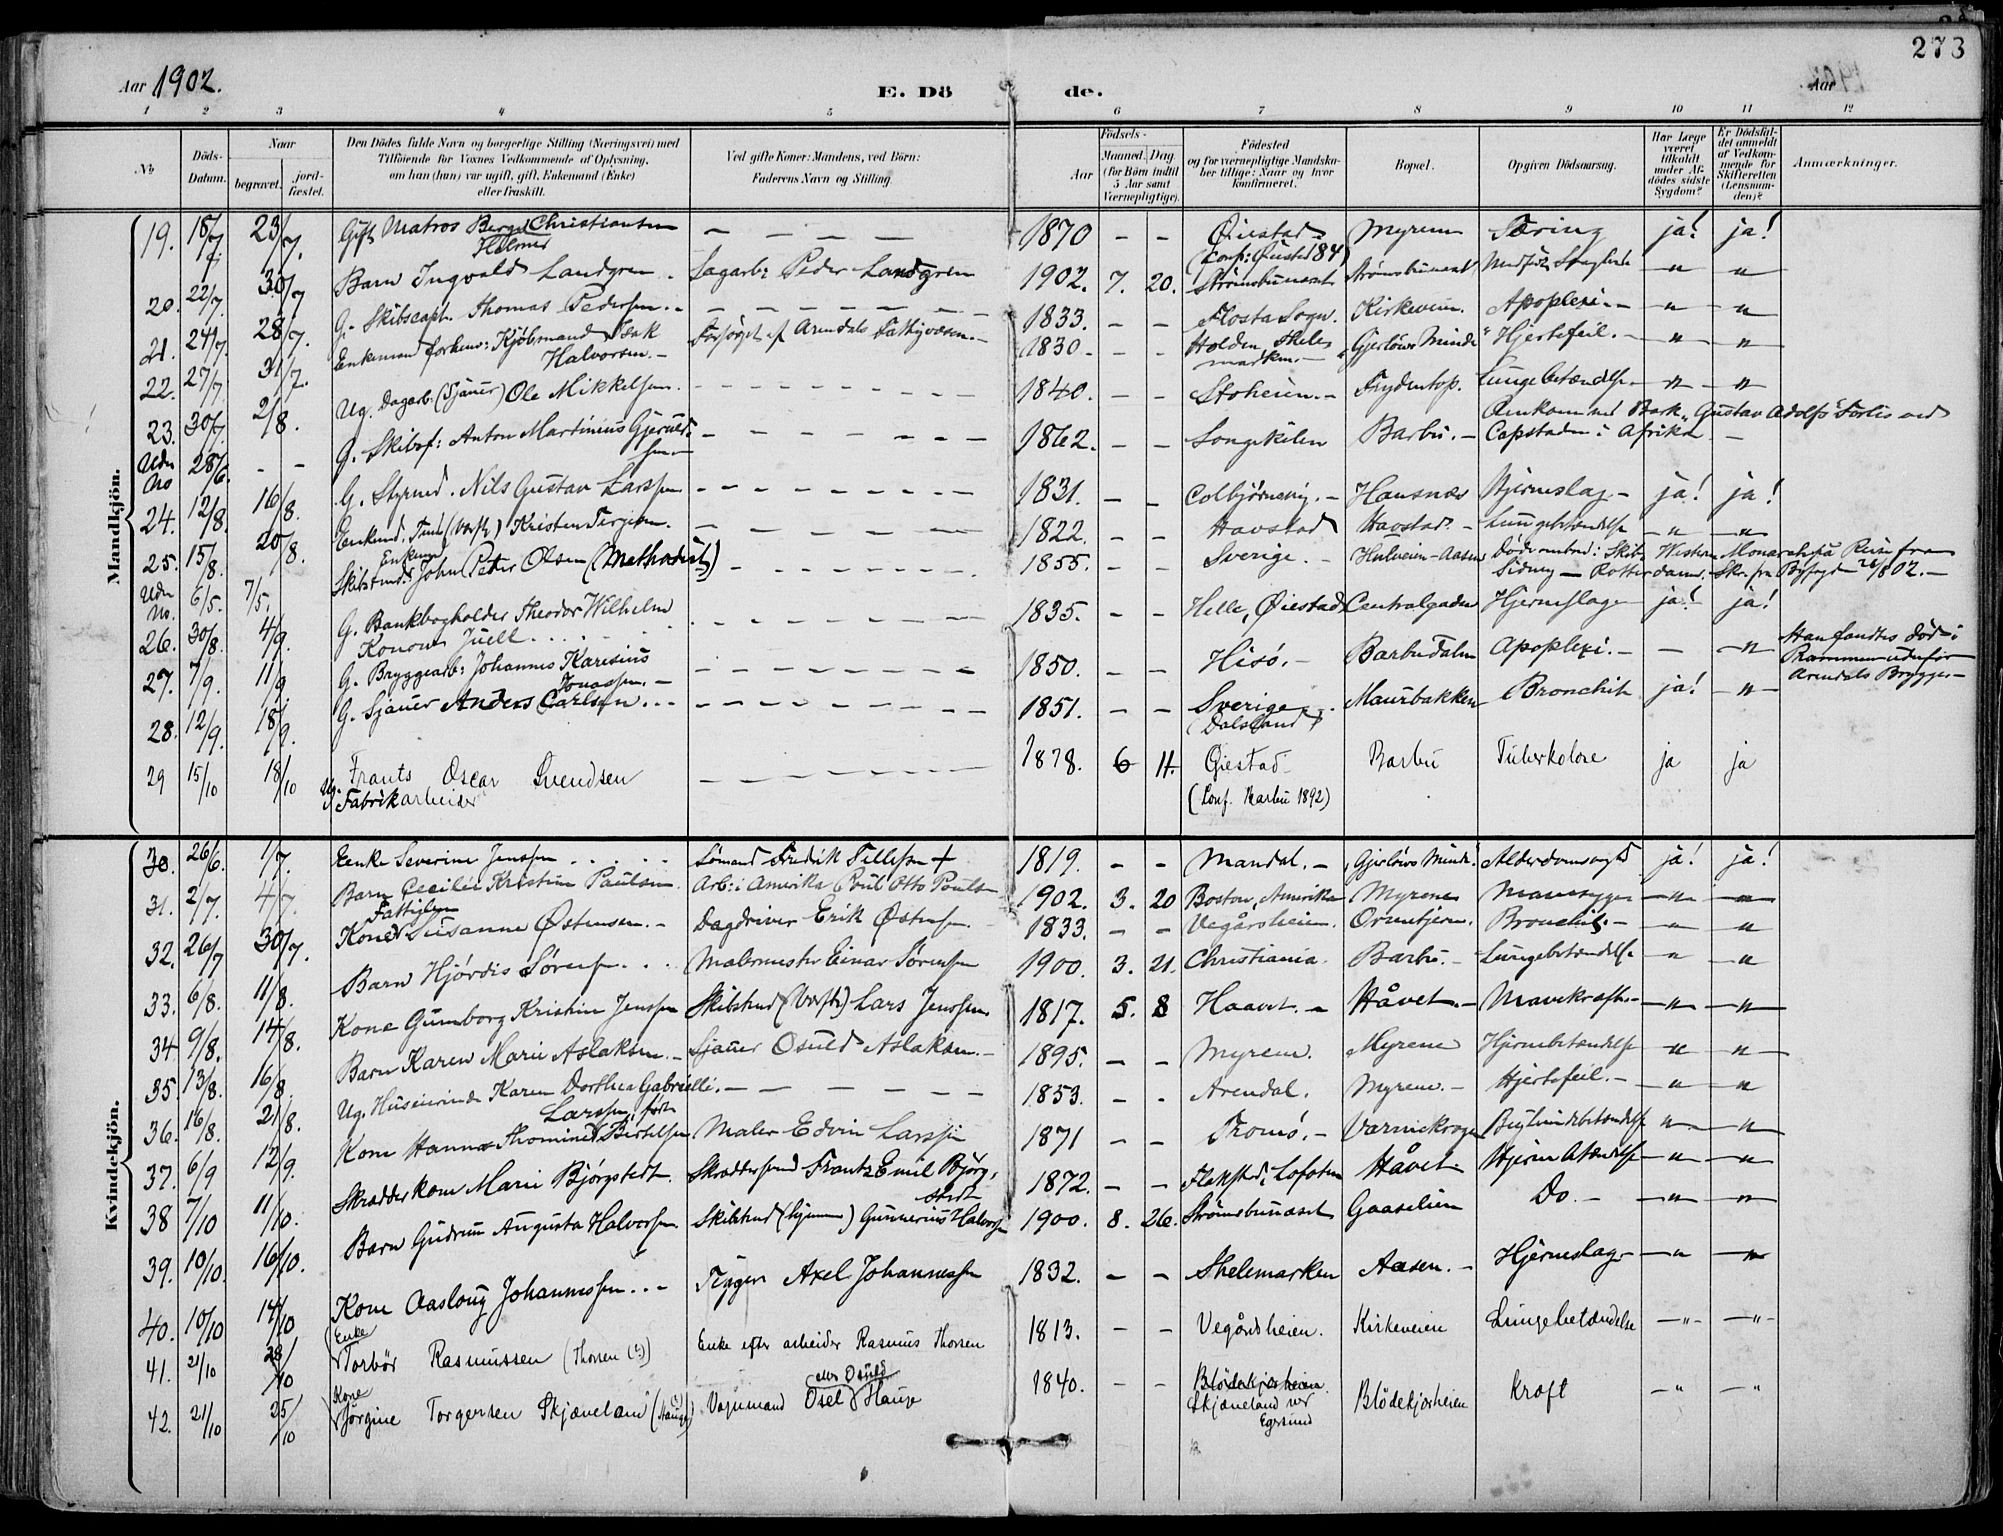 273
Aar 1902.
E. Dö de.
Aar
1 2 3 4 5 6 7 8 9 10 11 12
No
Döds-Datum.
Naar
begravet.
jord-fæstet.
Den Dödes fulde Navn og borgerlige Stilling (Næringsvei) med
Tilföiende for Voxnes Vedkommende af Oplysning,
om han (hun) var ugift, gift, Enkemand (Enke)
eller fraskilt.
Ved gifte Koner: Mandens, ved Börn:
Faderens Navn og Stilling.
Födsels-
Aar
Maaned. Dag
(for Börn indtil
5 Aar samt
Værnepligtige).
Födested
og for værnepligtige Mandska-
ber tillige: Naar og hvor
konfirmeret.
Bopæl.
Opgiven Dödsaarsag.
Har Læge
været
tilkaldt
under Af-
dödes sidste
Sygdom?
Er Dödsfal-
det anmeldt
af Vedkom-
mende for
Skifteretten
(Lensman-
den)?
Anmærkninger.
Mandkjön.
19. 18/7. 23/7. Gift Matros Berge Christiansen — — — — 1870 – – Öiestad Myrene Tæring ja! ja!
Helmer (Conf: Öiestad 84)
20. 22/7. 30/7 Barn Ingvald Landgren. Sagarb: Peder Landgren 1902. 7. 20. Strømsbuneset Strømsbuneset Medfödt — " — "
21. 24/7. 28/7. G. Skibscapt. Thomas Pedersen. – – – 1833. – – Flosta Sogn. Kirkeveien. Apoplexi. – — " — "
22. 27/7 31/7. Enkemand forhenv: Kjøbmand Isak Halvorsen. – Forsörget af Arendals Fattigvæsen. – 1830. – – Holden, Skiens "Gjerlöws Minde" Hjertefeil. – — " — "
23. 30/7. 2/8. Ug. Dagarb. (Sjauer) Ole Mikkelsen. – – – 1840. – – Stoheien. – Frydentop. Lungebetændelse. — " — "
Uden No 28/6. – – G. Skibsf: Anton Martinius Gjeruldsen. – – – 1862. – – Songekilen Barbu. – Omkommet med Bark "Gustav Adolfs" Forlis ved Capstaden i Afrika –
24. 12/8. 16/8. G. Styrmd. Nils Gustav Larssen – – – 1831. – – Colbjörnsvig. – Hansnæs Hjerneslag – ja! ja!
25. 15/8. 20/8. Enkemd. Tmd. (Værft) Kristen Terjesen. – – – 1822. – – Havstad Havstad. – Lungebetændelse — " — "
Uden No. 6/5. 7/5. Skibstmd. Enkemd John Peter Olsen (Methodist) – – – 1855. – – Sverige. – Hulveien – Aasen Döde ombord i Skib "Western Monarch" på Reise fra Sidney – Rotterdam. – Skr. fra Byfogd 26/8 02. –
26. 30/8. 4/9. G. Bankbogholder Theodor Wilhelm Konow Juell . . . 1835. – – Helle, Øiestad Centralgaden Hjerneslag ja! ja!
27. 7/9. 11/9 G. Bryggearb: Johannes Karisius Jonassen. – – – – 1850. – – Hisö. – Barbudalen Apoplexi. – — — " Han fandtes död i Rammen udenfor Arendals Brygger –
28. 12/9. 18/9. G. Sjauer Anders Carlsen . . . – – – 1851. – – Sverige – (Dalsland) Maurbakken Bronchit ja! — "
29 15/10 18/10 Ug. Frants Oscar Svendsen – – – 1878. 6 11. Öiestad Barbu Tuberkolose ja ja
Fabrikarbeider (Conf. Barbu 1892)
Kvindekjön.
30. 26/6. 1/7. Enke Severine Jenssen . . . . . Sömand Fredrik Tellefsen + 1819. – – Mandal. – "Gjerlöws Minde" Alderdomssvaghed ja! ja!
31. 2/7. 4/7. Barn Cecilie Kristine Paulsen. Arb: i Amerika Poul Otto Poulsen 1902. 3. 20 Boston, Amerika Myrene Mavesyge — " — "
32. 26/7 30/7. Fattiglem Kone Susanne Østensen. – Dagdriver Erik Østensen. 1833. – – Vegårsheien. Ormetjern. Bronchit. – — " — "
33. 6/8. 11/8. Barn Hjördis Sörensen. . . Malermester Einar Sörensen 1900. 3. 21. Christiania. Barbu. – Lungebetændelse — " — "
34 9/8. 14/8. Kone Gunborg Kristine Jenssen Skibstmd (Værft) Lars Jenssen. 1817. 5. 8 Haavet. – Håvet. – Mavekræft. — " — "
35. 13/8. 16/8. Barn Karen Marie Aslaksen. – Sjauer Osuld Aslaksen. – 1895. – – Myrene. Myrene Hjernebetændelse — " — "
36. 16/8. 21/8. Ug. Huseierinde Karen Dorthea Gabrielli. – – – – 1853. – – Arendal. Myrene. – Hjertefeil. – — " — "
37. 6/9 12/9. Kone Hanna Thomine Larssen, født Bertelsen Maler Edvin Larssen 1871 – – Tromö. – Varnekrogen Bughindebetændelse — " — "
38 7/10 11/10. Skrædderkone Marie Björgstedt. Skræddersvend Frantz Emil Björg, stedt 1872. – – Flakstad i Lofoten Håvet Hjernebetændelse — " — "
39. 10/10. 16/10. Barn Gudrun Augusta Halvorsen Skibstmd (hjemme) Gunnerius Halvorsen 1900. 8. 26. Strömsbuneset Gaaselien Do. – — " — "
40. 10/10 14/10 Kone Aasloug Johannessen . . – Tigger Axel Johannessen 1832. – – Skelemarken Aasen. – Hjerneslag – — " — "
41. 21/10 28/10 (Enke) Torbör Rasmussen (Thorsen (?)) Enke efter arbeider Rasmus Thorsen 1813. – – Vegårdsheien. Kirkeveien Lungebetændelse — " — — " —
42. 21/10 25/10 (Kone) Jörgine Torgersen Skjæveland (Hauge) Vognmand Osel eller Osuld Hauge 1840. – – Blödekjærheien. Skjæveland ved Egersund Blödekjærheien kræft — " — "